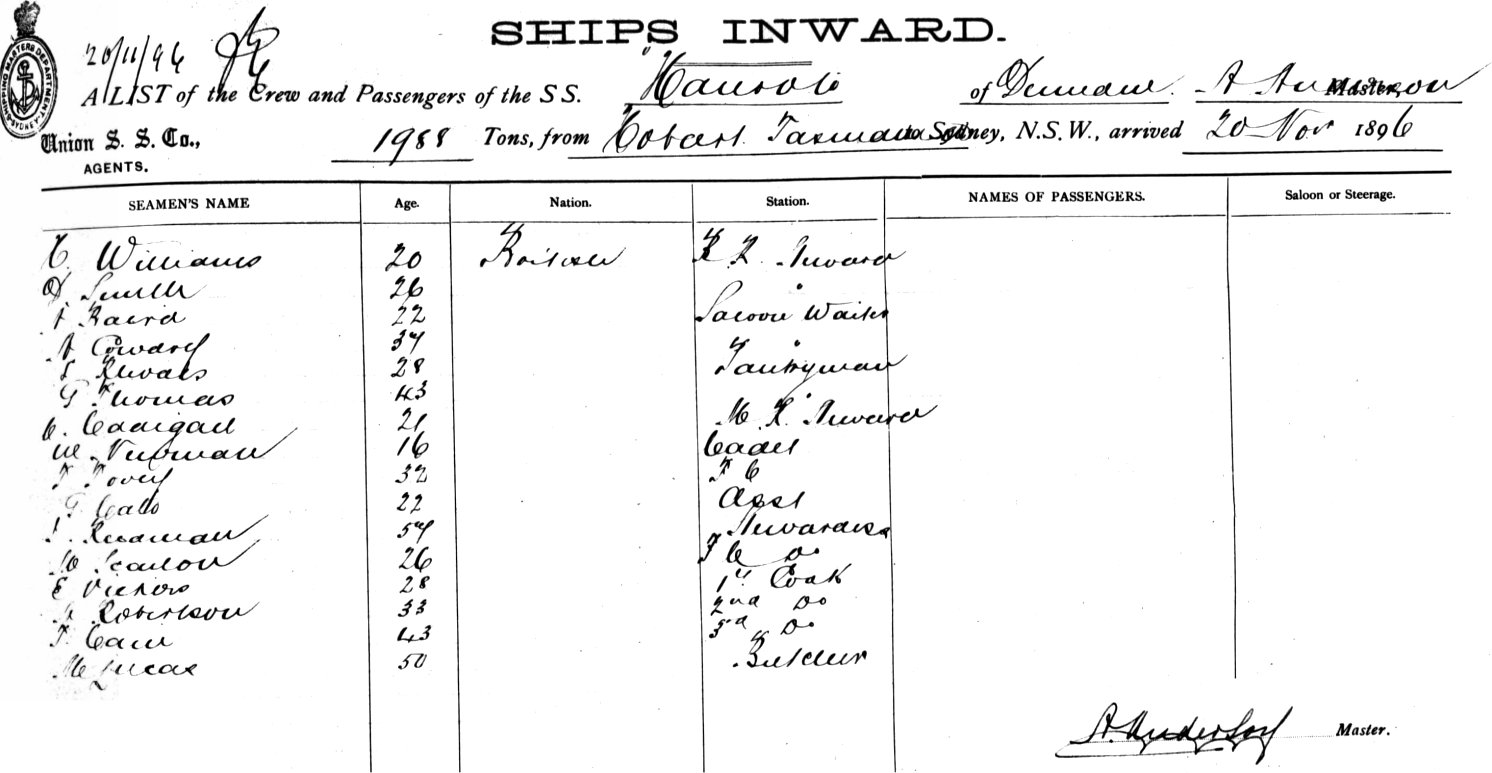 SHIPS INWARD.
20/11/96
A LIST of the Crew and Passengers of the SS. "Hauroto of Dunedin. A Anderson Master,
Union S. S. Co., 1988 Tons, from Hobart Tasmania to Sydney, N.S.W., arrived 20 Nov 1896
AGENTS.
SEAMEN'S NAME Age. Nation. Station. NAMES OF PASSENGERS. Saloon or Steerage.
Williams 20 British Steward
Smith 26 "
Baird 22 Saloon Waiter
Coward 37 " "
28 Pantryman
G Thomas 43
C. 21 Steward
Newman 16 Cadet
T Tovey 32 F C
G 22 Asst
57 Stewardess
Scanlon 26 F C Do
E Vickers 28 1st Cook
Robertson 33 2nd Do
43 3rd Do
Lucas 50 Butcher
A. Anderson Master.
SHIPPING MASTERS DEPARTMENT SYDNEY